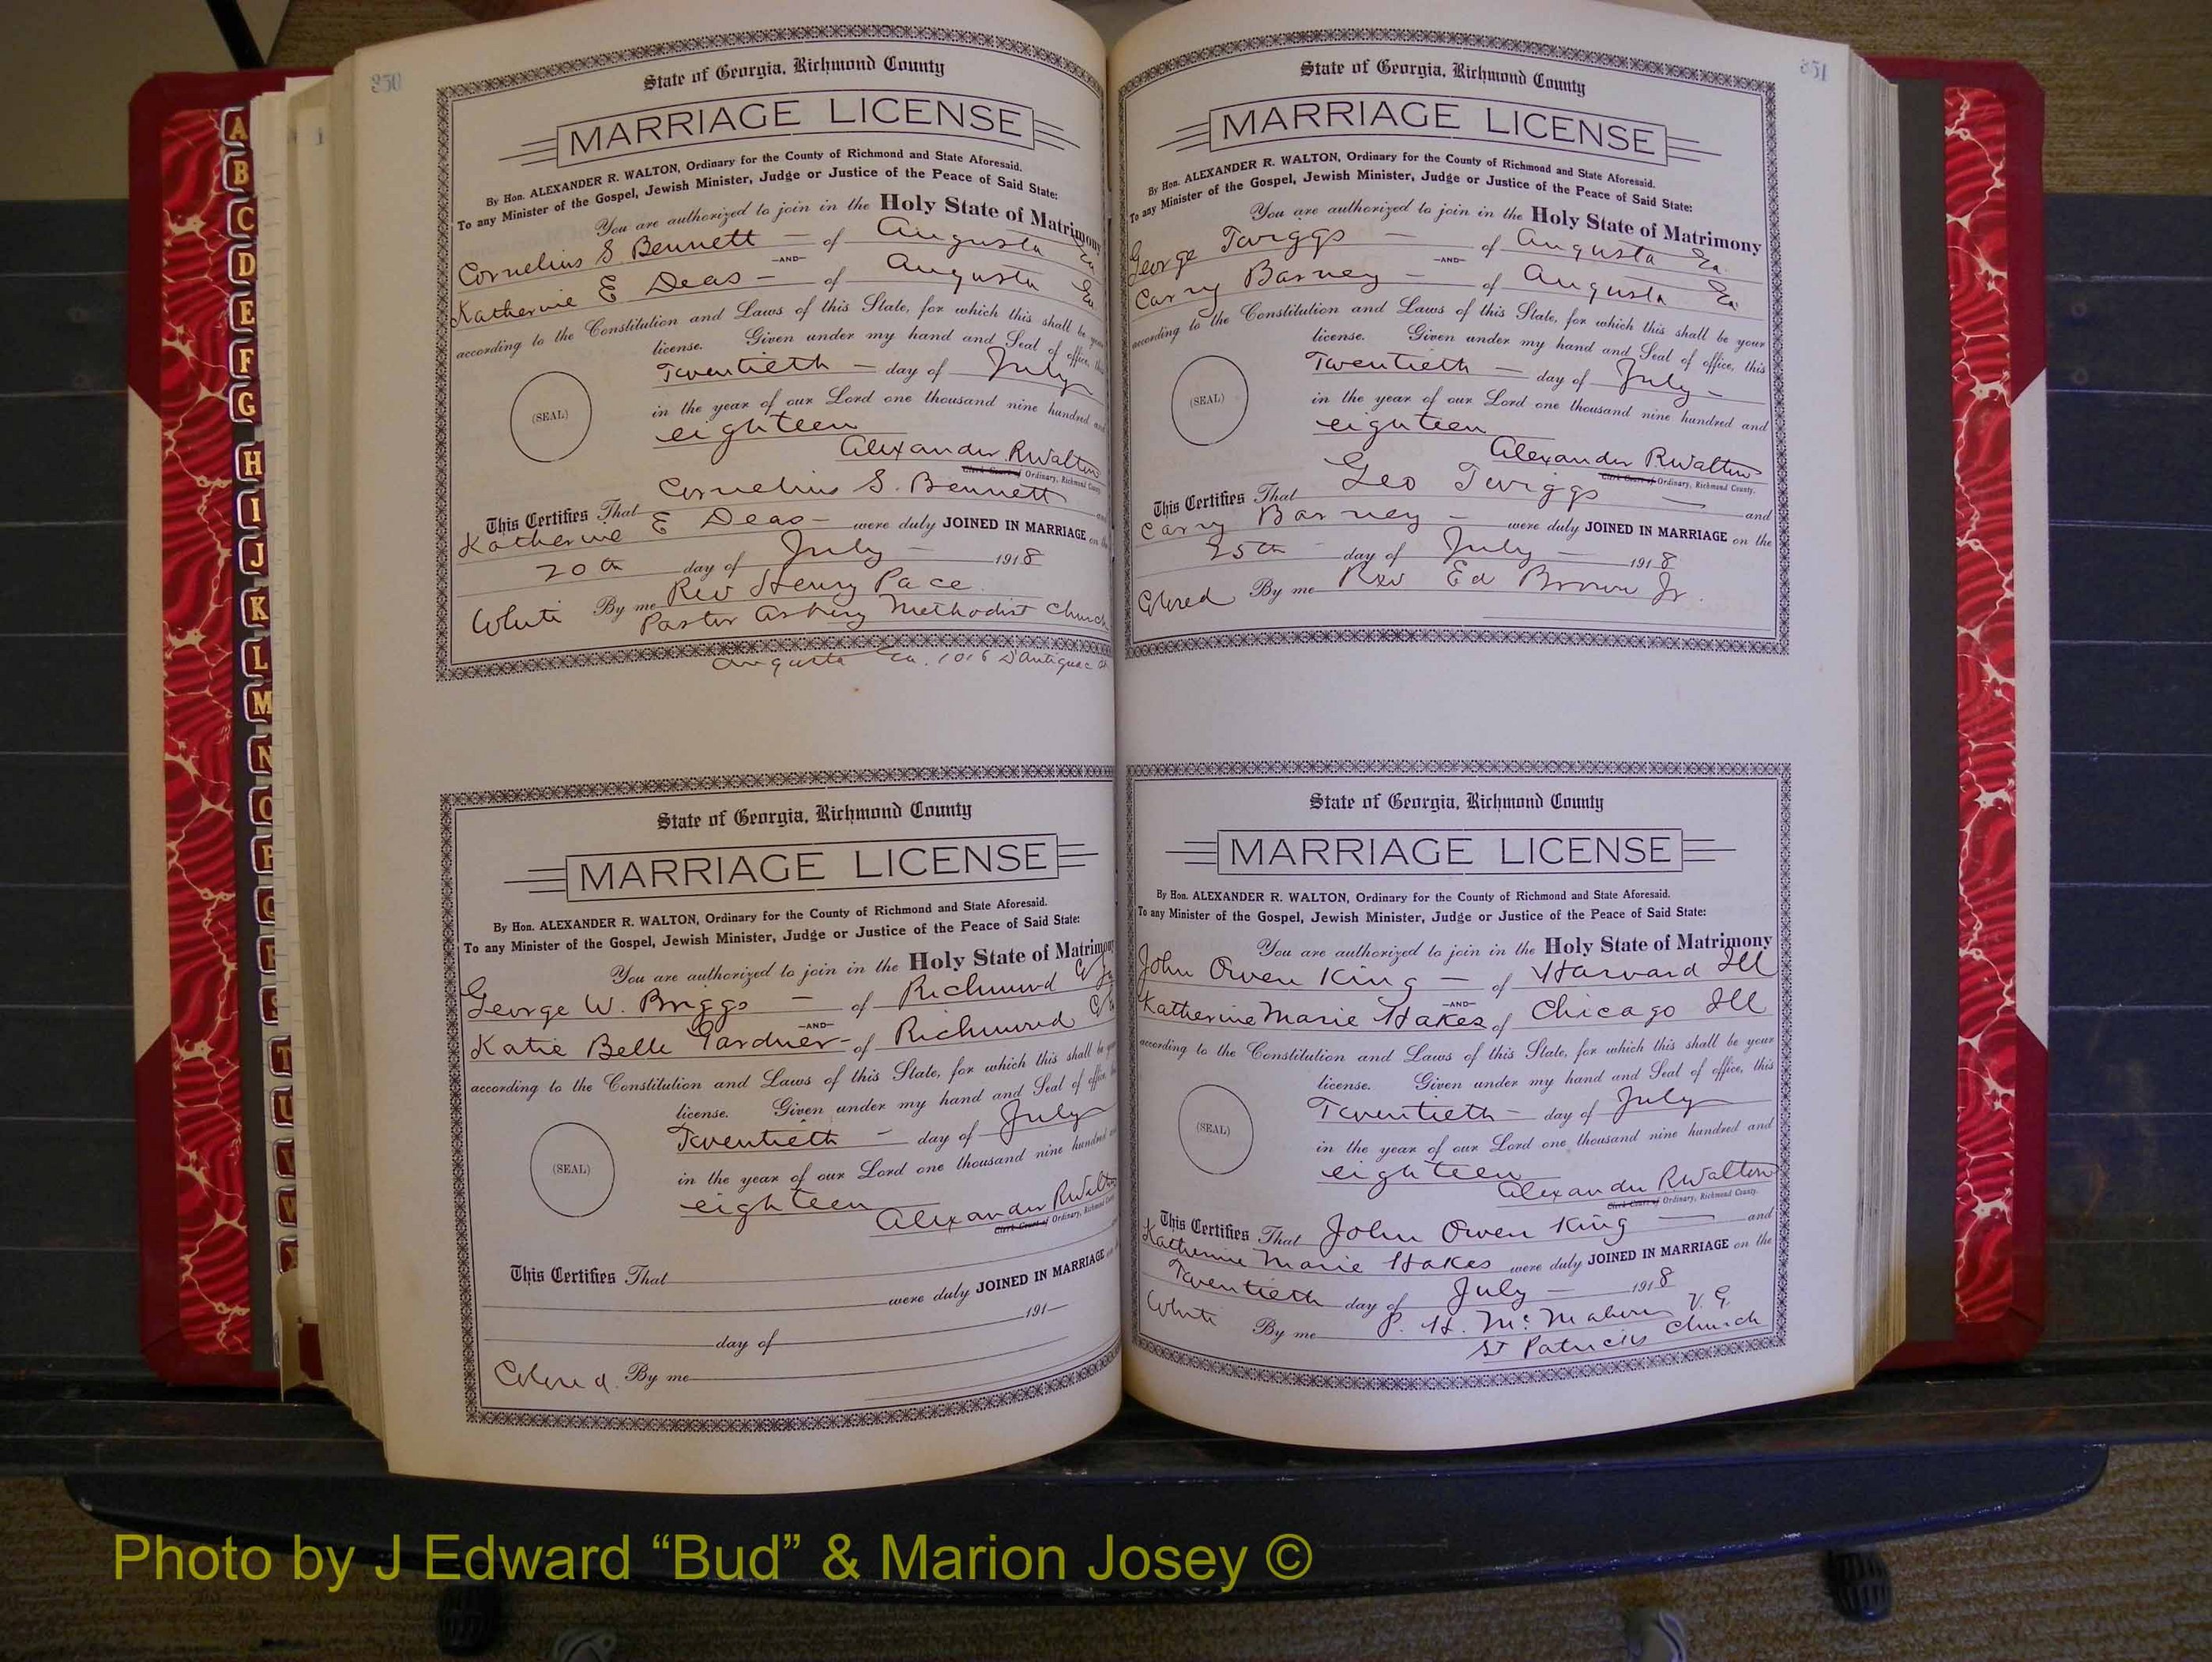 350
State of Georgia, Richmond County
MARRIAGE LICENSE
By Hon. ALEXANDER R. WALTON, Ordinary for the County of Richmond and State Aforesaid.
To any Minister of the Gospel, Jewish Minister, Judge or Justice of the Peace of Said State:
You are authorized to join in the Holy State of Matrimony
Cornelius S. Bennett — of Augusta Ga
—AND—
Katherine E Deas — of Augusta Ga
according to the Constitution and Laws of this State, for which this shall be your
license. Given under my hand and Seal of office, this
Twentieth — day of July
(SEAL)
in the year of our Lord one thousand nine hundred and
eighteen
Alexander R Walton
Clerk Court of Ordinary, Richmond County.
This Certifies That Cornelius S. Bennett and
Katherine E Deas — were duly JOINED IN MARRIAGE on the
20th day of July — 1918
White By me Rev Henry Pace
Pastor Asbury Methodist Church
Augusta Ga. 1016 D'Antignac St
State of Georgia, Richmond County
MARRIAGE LICENSE
By Hon. ALEXANDER R. WALTON, Ordinary for the County of Richmond and State Aforesaid.
To any Minister of the Gospel, Jewish Minister, Judge or Justice of the Peace of Said State:
You are authorized to join in the Holy State of Matrimony
George W. Briggs — of Richmond
—AND—
Katie Belle Gardner — of Richmond
according to the Constitution and Laws of this State, for which this shall be your
license. Given under my hand and Seal of office, this
Twentieth — day of July
(SEAL)
in the year of our Lord one thousand nine hundred and
eighteen
Alexander R Walton
Clerk Court of Ordinary, Richmond County.
This Certifies That
were duly JOINED IN MARRIAGE on
191—
day of
Colored. By me
351
State of Georgia, Richmond County
MARRIAGE LICENSE
By Hon. ALEXANDER R. WALTON, Ordinary for the County of Richmond and State Aforesaid.
To any Minister of the Gospel, Jewish Minister, Judge or Justice of the Peace of Said State:
You are authorized to join in the Holy State of Matrimony
George Twiggs — of Augusta Ga
—AND—
Carry Barney — of Augusta Ga
according to the Constitution and Laws of this State, for which this shall be your
license. Given under my hand and Seal of office, this
Twentieth — day of July —
(SEAL)
in the year of our Lord one thousand nine hundred and
eighteen
Alexander R Walton
Clerk Court of Ordinary, Richmond County.
This Certifies That Geo Twiggs — and
Carry Barney — were duly JOINED IN MARRIAGE on the
25th — day of July — 1918
Colored By me Rev Ed Brown Jr.
State of Georgia, Richmond County
MARRIAGE LICENSE
By Hon. ALEXANDER R. WALTON, Ordinary for the County of Richmond and State Aforesaid.
To any Minister of the Gospel, Jewish Minister, Judge or Justice of the Peace of Said State:
You are authorized to join in the Holy State of Matrimony
John Owen King — of Harvard Ill
—AND—
Katherine Marie Hakes of Chicago Ill
according to the Constitution and Laws of this State, for which this shall be your
license. Given under my hand and Seal of office, this
Twentieth — day of July
(SEAL)
in the year of our Lord one thousand nine hundred and
eighteen
Alexander R Walton
Clerk Court of Ordinary, Richmond County.
This Certifies That John Owen King — and
Katherine Marie Hakes were duly JOINED IN MARRIAGE on the
Twentieth day of July — 1918
White By me P. H. McMahon V. G.
St Patricks Church
A
B
C
D
E
F
G
H
I
J
K
L
M
N
O
P
Q
R
S
T
U
V
W
Photo by J Edward “Bud” & Marion Josey ©